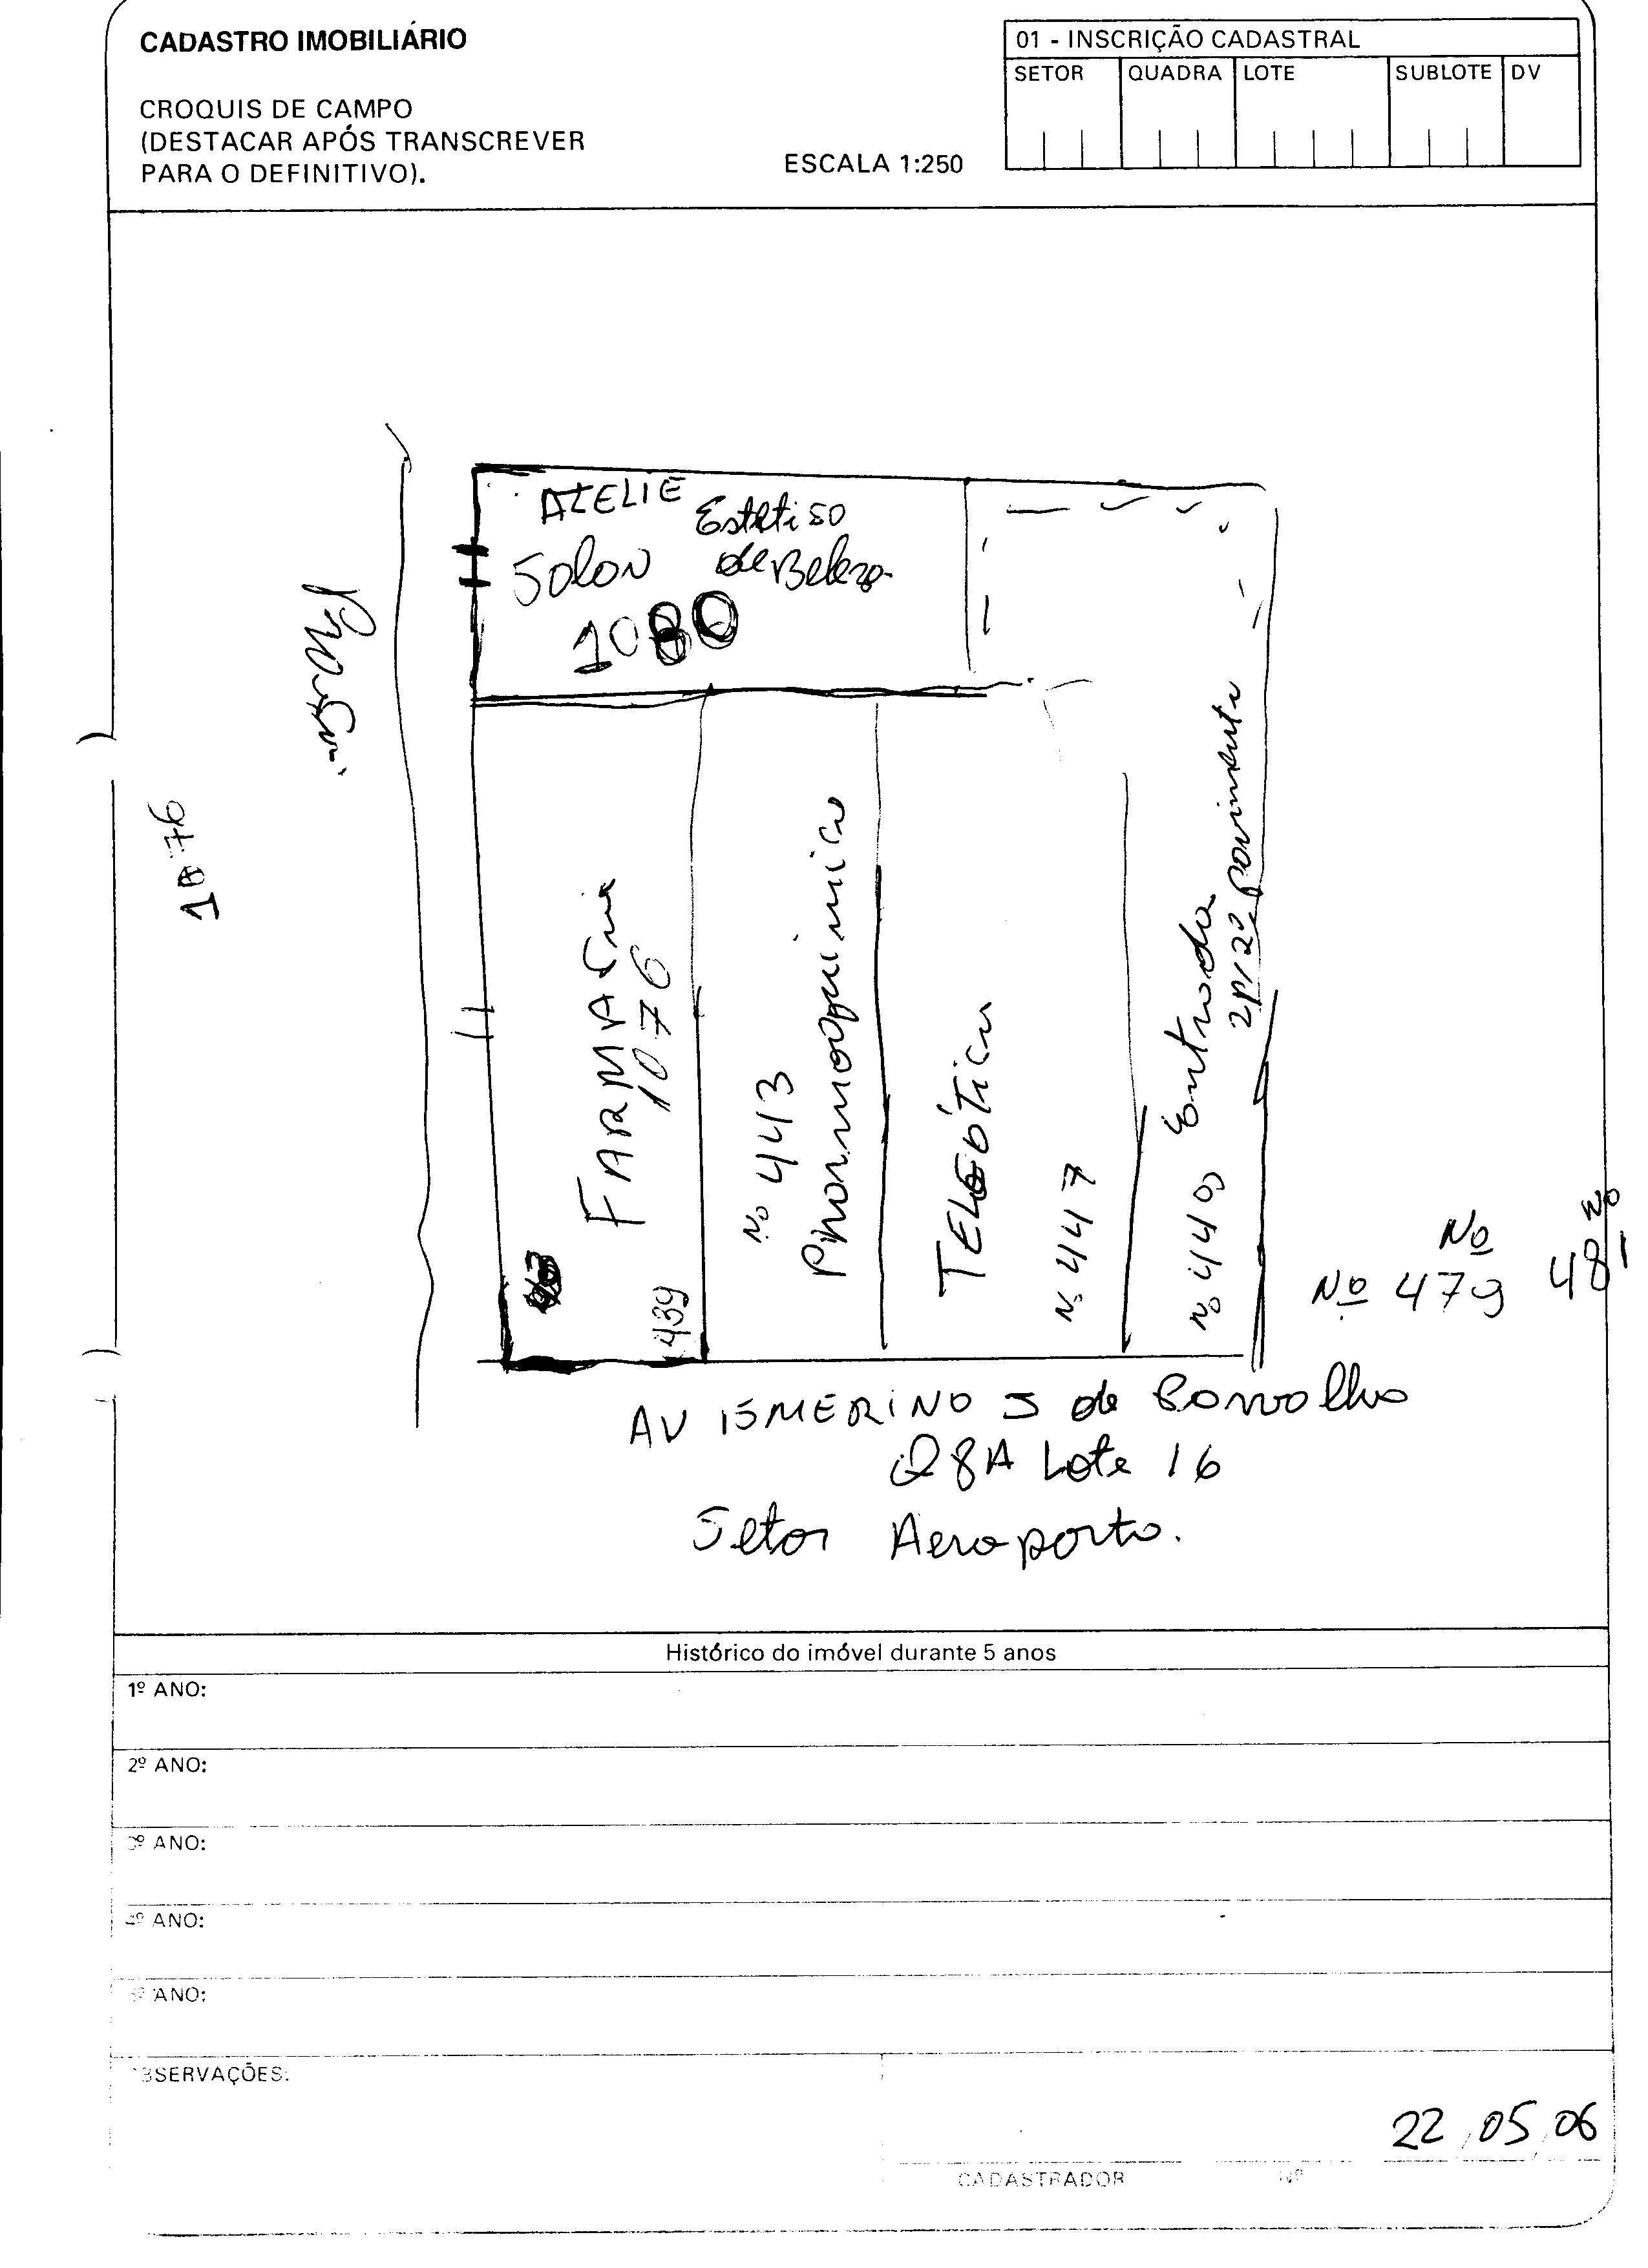 CADASTRO IMOBILIÁRIO
CROQUIS DE CAMPO
(DESTACAR APÓS TRANSCREVER
PARA O DEFINITIVO).
ESCALA 1:250
01 - INSCRIÇÃO CADASTRAL
SETOR QUADRA LOTE SUBLOTE DV
ATELIE
de Beleza
1080
1076
FARMACia
1076
439
No 443
Pharmaquimica
TELEÓTica
No 447
Entrada
p/ 2º Pavimento
No 449
No
Nº 479
No
481
AV ISMERINO S de Carvalho
Q 8A Lote 16
Setor Aeroporto.
Histórico do imóvel durante 5 anos
1º ANO:
2º ANO:
3º ANO:
4º ANO:
ANO:
BSERVAÇÕES:
22 05 06
CADASTRADOR Nº